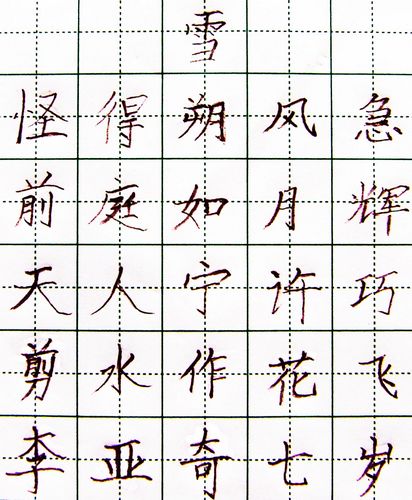 雪
怪得朔风急
前庭如月辉
天人宁许巧
剪水作花飞
李亚奇七岁